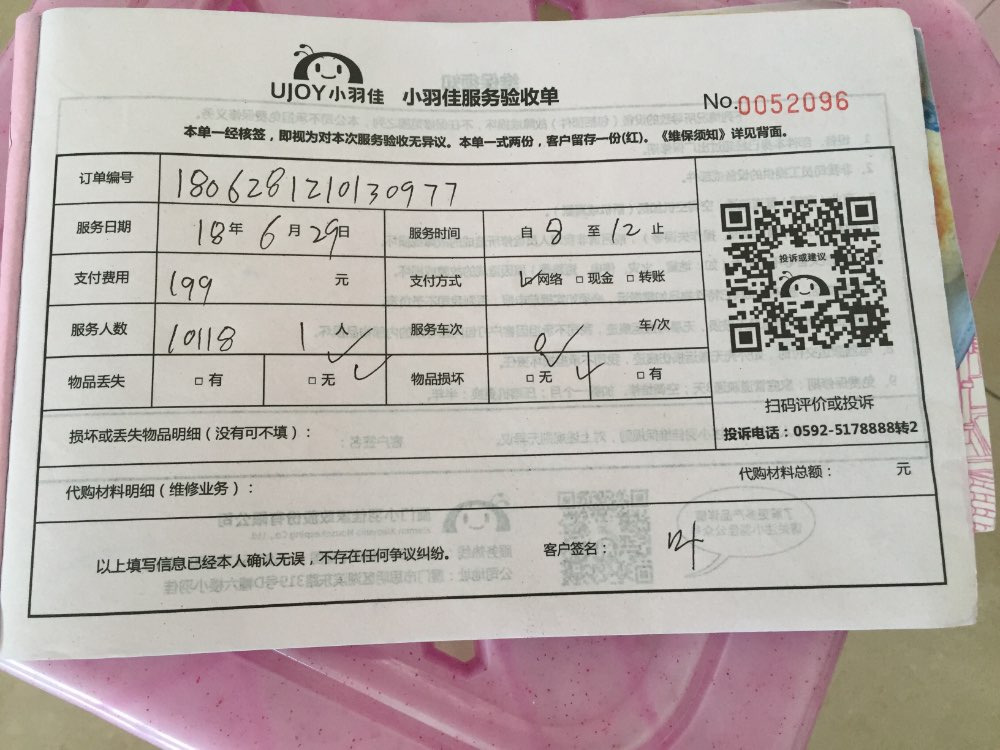 UJOY小羽佳 小羽佳服务验收单
No.0052096
本单一经核签，即视为对本次服务验收无异议。本单一式两份，客户留存一份(红)。《维保须知》详见背面。
订单编号 1806281210130977
服务日期 18年6月29日 服务时间 自8至12止
投诉或建议
支付费用 199 元 支付方式 ☑网络 □现金 □转账
服务人数 10118 1 服务车次 0 车/次
物品丢失 □有 □无✓ 物品损坏 □无✓ □有
扫码评价或投诉
投诉电话：0592-5178888转2
损坏或丢失物品明细（没有可不填）：
代购材料明细（维修业务）： 代购材料总额： 元
以上填写信息已经本人确认无误，不存在任何争议纠纷。 客户签名：